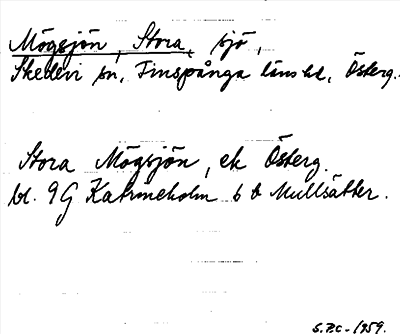 Mögsjön, Stora, sjö,
Skedevi sn, Finspånga läns hd, Österg.
Stora Mögsjön, ek Österg.
bl. 9G Katrineholm 6 b Mullsätter.
S.P.C. 1959.